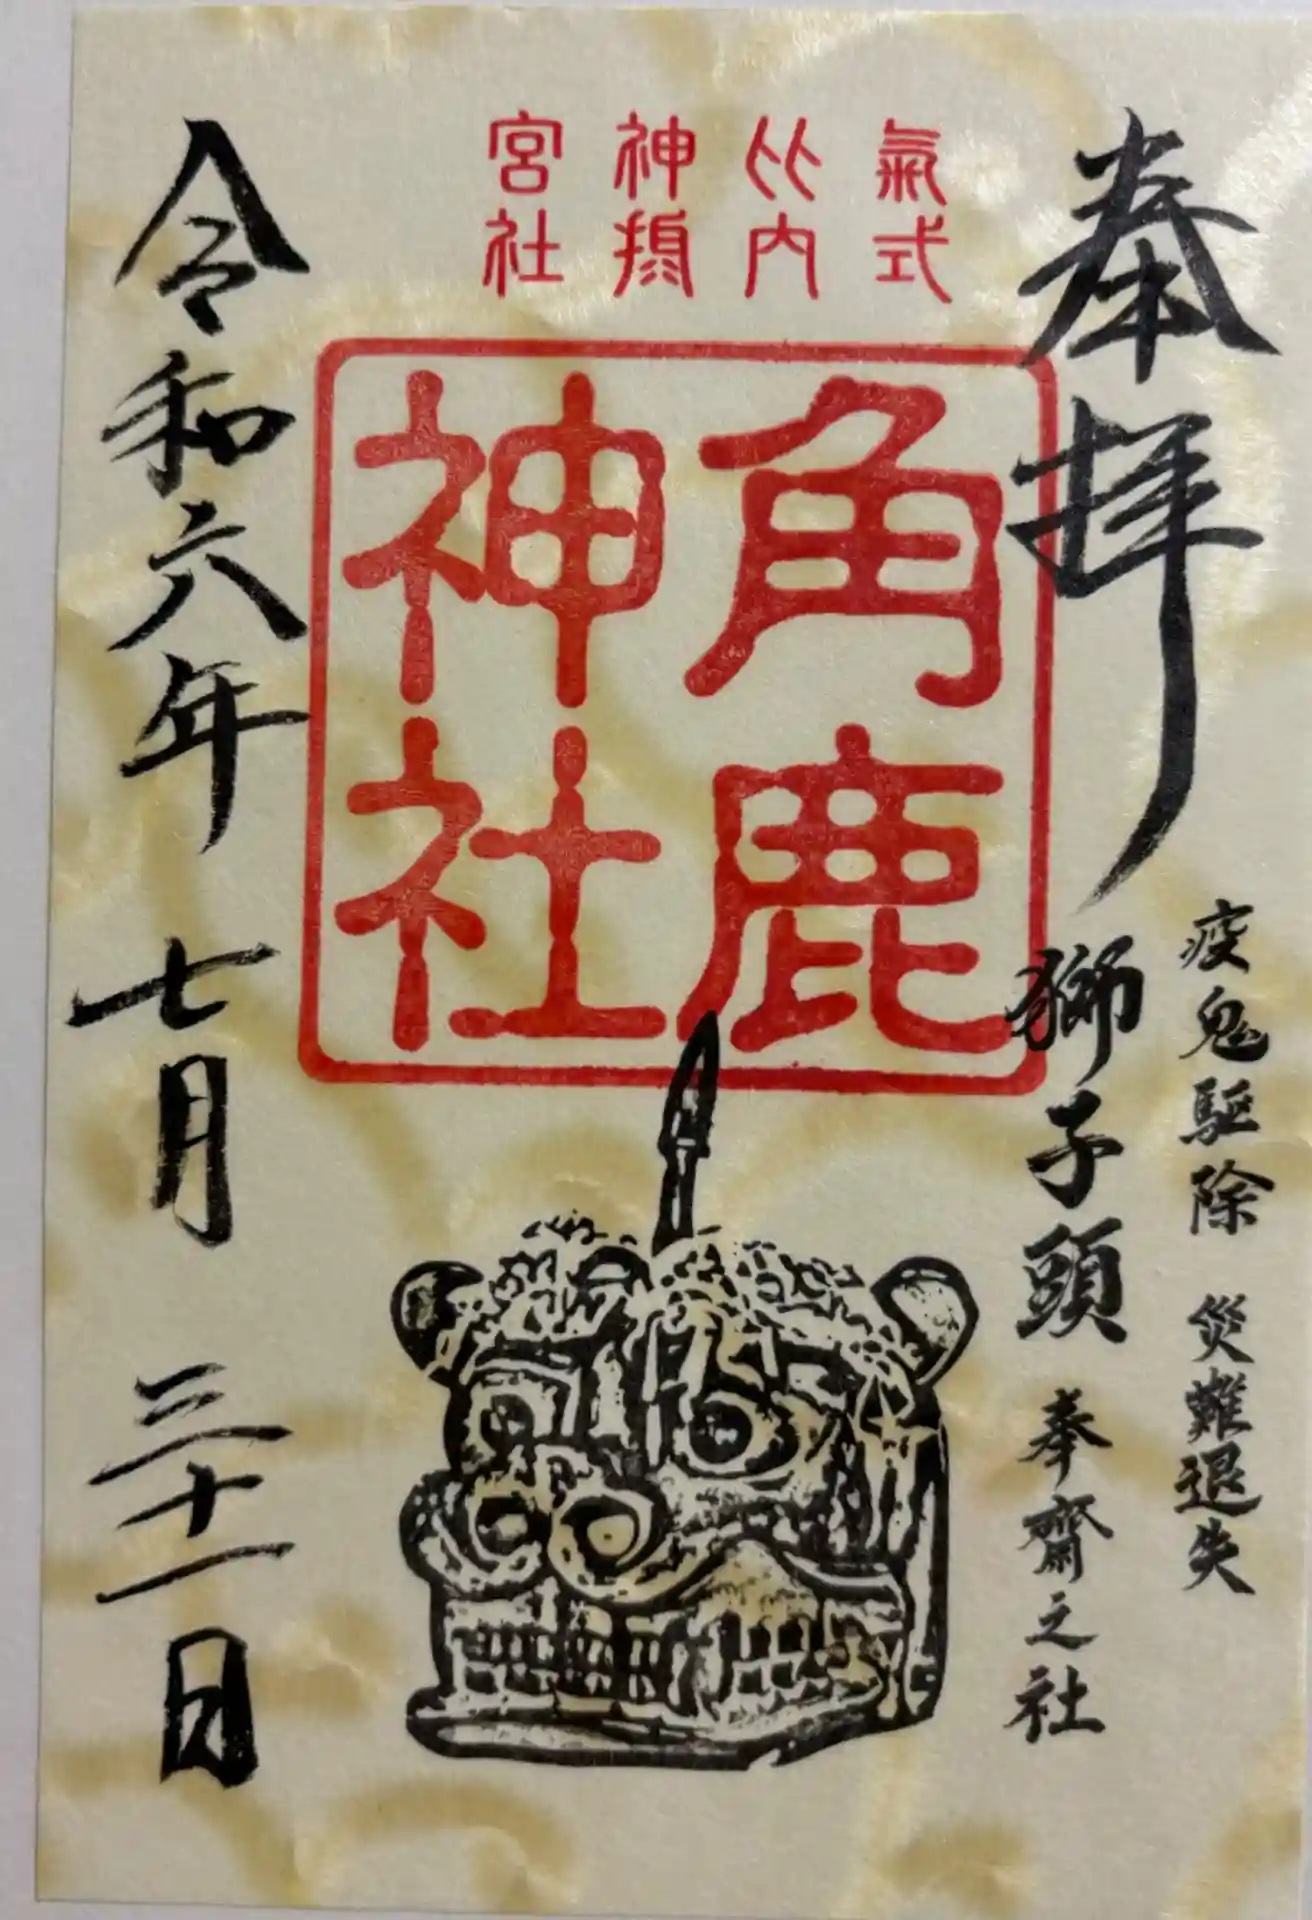 疫鬼駆除 災難退失
奉拝
獅子頭 奉齋之社
氣比神宮
式内摂社
角鹿
神社
令和六年 七月 三十一日